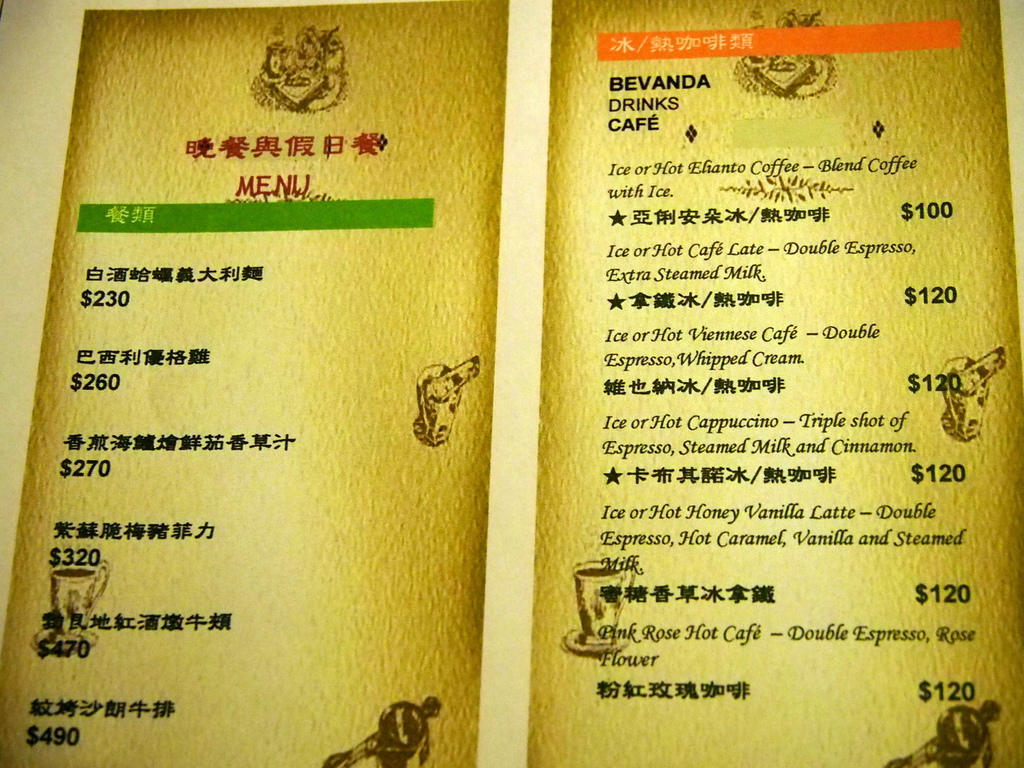 晚餐與假日餐
MENU
餐類
白酒蛤蠣義大利麵
$230
巴西利優格雞
$260
香煎海鱸燴鮮茄香草汁
$270
紫蘇脆梅豬菲力
$320
勃艮地紅酒燉牛頰
$470
紋烤沙朗牛排
$490
冰/熱咖啡類
BEVANDA
DRINKS
CAFÉ
Ice or Hot Elianto Coffee – Blend Coffee
with Ice.
★亞俐安朵冰/熱咖啡 $100
Ice or Hot Café Late – Double Espresso,
Extra Steamed Milk.
★拿鐵冰/熱咖啡 $120
Ice or Hot Viennese Café – Double
Espresso,Whipped Cream.
維也納冰/熱咖啡 $120
Ice or Hot Cappuccino – Triple shot of
Espresso, Steamed Milk and Cinnamon.
★卡布其諾冰/熱咖啡 $120
Ice or Hot Honey Vanilla Latte – Double
Espresso, Hot Caramel, Vanilla and Steamed
Milk.
蜜糖香草冰拿鐵 $120
Pink Rose Hot Café – Double Espresso, Rose
Flower
粉紅玫瑰咖啡 $120